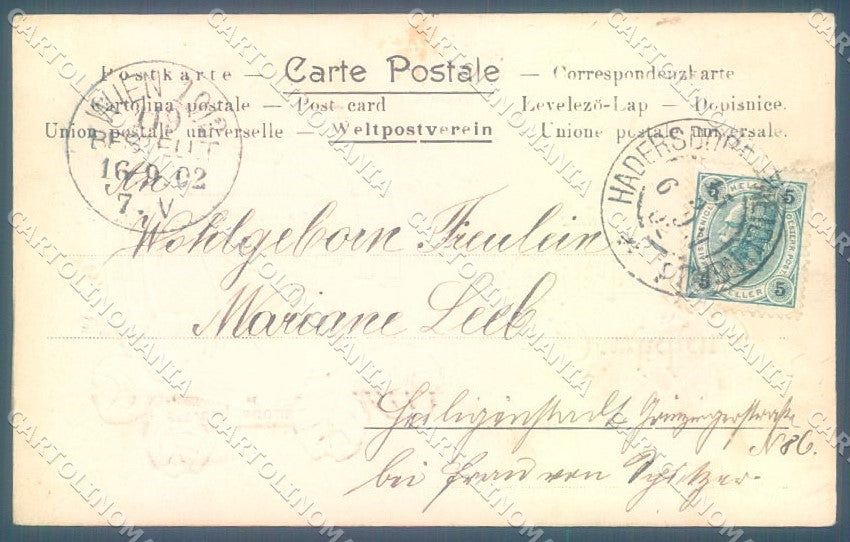 Postkarte — Carte Postale — Correspondenzkarte
Cartolina postale — Post card Levelező-Lap — Dopisnice.
Union postale universelle — Weltpostverein — Unione postale universale.
WIEN 19/2
BESTELLT
16.9.02
7. V
HADERSDORF
5 HELLER 5
5 HELLER 5
An
Wohlgeborn Freulein
Mariane Leeb
Heiligenstadt Grinzingerstraße
N 86.
bei Frau von
CARTOLINOMANIA